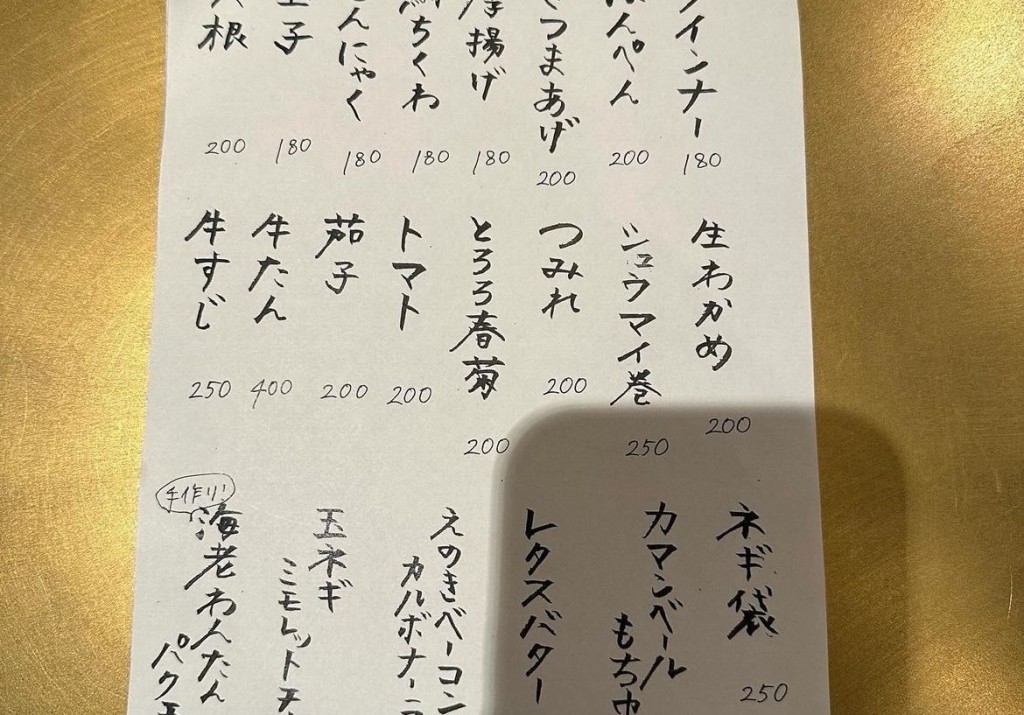 インナー
180
んぺん
200
つまあげ
200
揚げ
180
ちくわ
180
んにゃく
180
子
180
根
200
生わかめ
200
シュウマイ巻
250
つみれ
200
とろろ春菊
200
トマト
200
茄子
200
牛たん
400
牛すじ
250
ネギ袋
250
カマンベール
もち巾
レタスバター
えのきベーコン
カルボナーラ
玉ネギ
ミモレットチ
手作り!
海老わんたん
パクチ